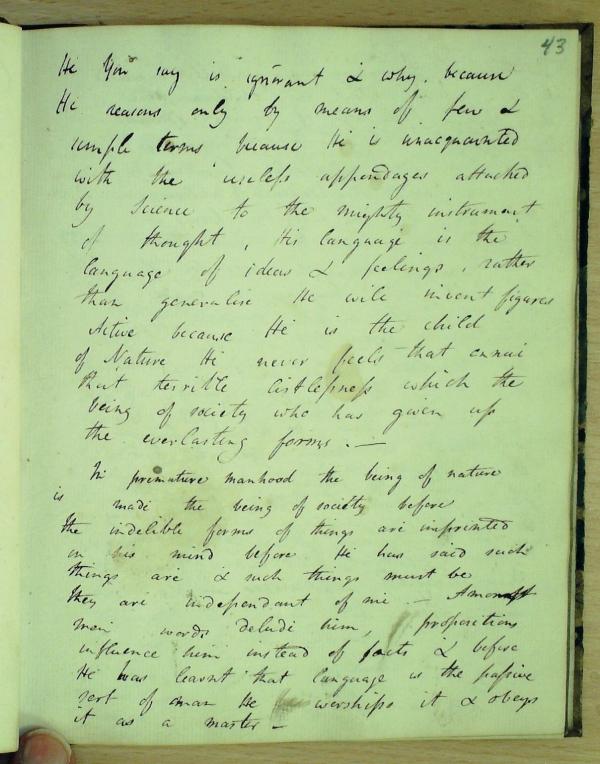 43
He You say is ignorant & why. because
He reasons only by means of few &
simple terms because He is unacquainted
with the useless appendages attached
by Science to the mighty instrument
of thought, His language is the
language of ideas & feelings, rather
than generalise He will invent figures
Active because He is the child
of Nature He never feels that ennui
that terrible listlessness which the
being of society who has given up
the everlasting forms. —
In premature manhood the being of nature
is made the being of society before
the indelible forms of things are imprinted
on his mind before He has said such
things are & such things must be
they are independant of me — Amongst
men words delude him, propositions
influence him instead of facts & before
He has learnt that language is the passive
of man He worships it & obeys
it as a master —